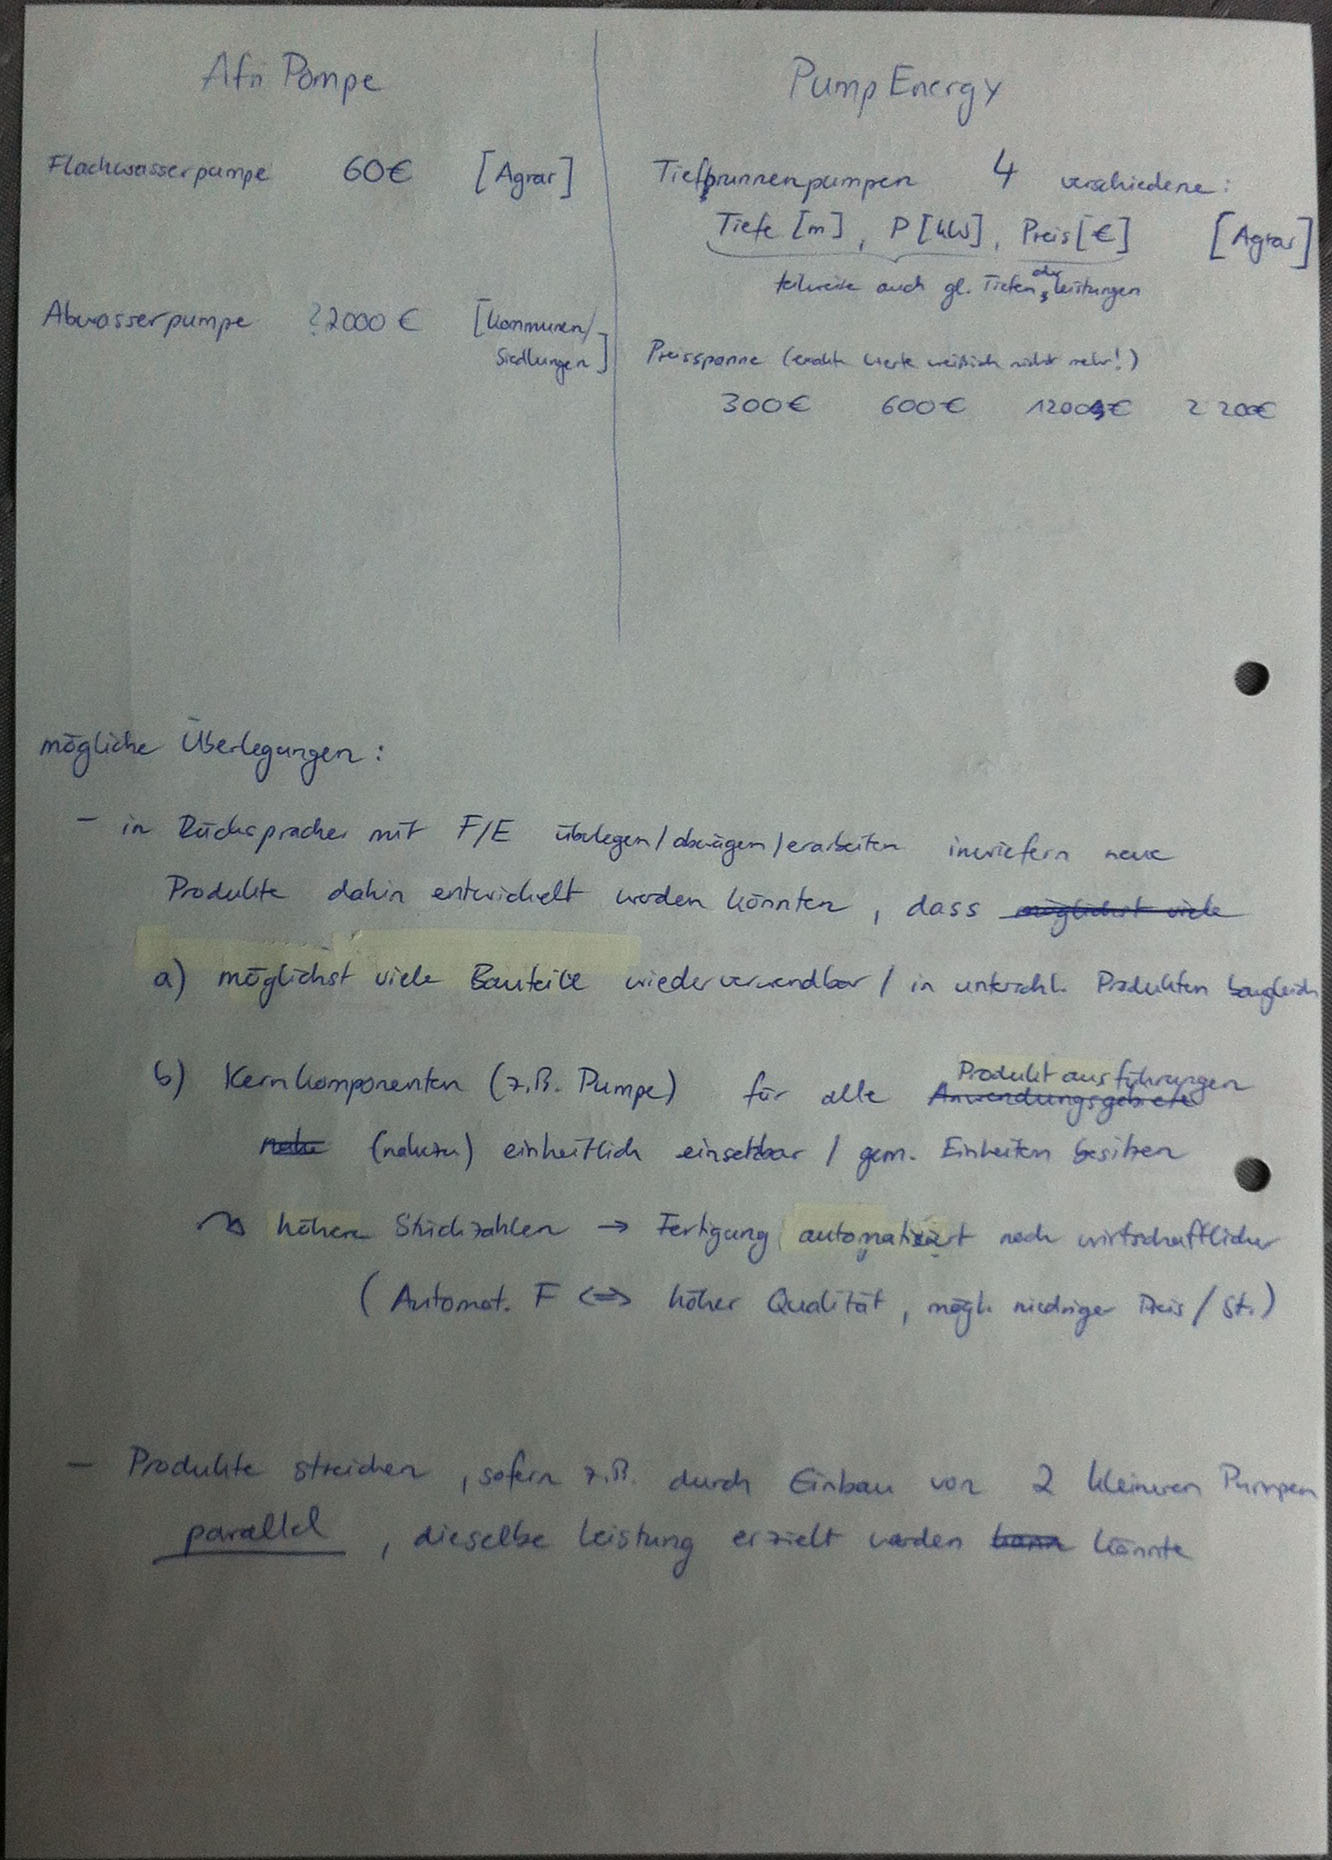 Afri Pompe
Flachwasserpumpe 60€ [Agrar]
Abwasserpumpe ?2000€ [Kommunen/
Siedlungen]
PumpEnergy
Tiefbrunnenpumpen 4 verschiedene:
Tiefe [m], P [kW], Preis [€] [Agrar]
teilweise auch gl. Tiefen oder Leistungen
Preisspanne (exakte Werte weiß ich nicht mehr!)
300€ 600€ 1200€ 2200€
mögliche Überlegungen:
- in Rücksprache mit F/E überlegen/abwägen/erarbeiten inwiefern neue
Produkte dahin entwickelt werden könnten, dass möglichst viele
a) möglichst viele Bauteile wiederverwendbar / in unterschl. Produkten baugleich
b) Kernkomponenten (z.B. Pumpe) für alle Anwendungsgebiete Produktausführungen
nahe (nahezu) einheitlich einsetzbar / gem. Einheiten besitzen
↳ höhere Stückzahlen → Fertigung automatisiert noch wirtschaftlicher
(Automat. F <=> höher Qualität, mögl. niedriger Preis / St.)
- Produkte streichen, sofern z.B. durch Einbau von 2 kleineren Pumpen
parallel, dieselbe Leistung erzielt werden kann könnte